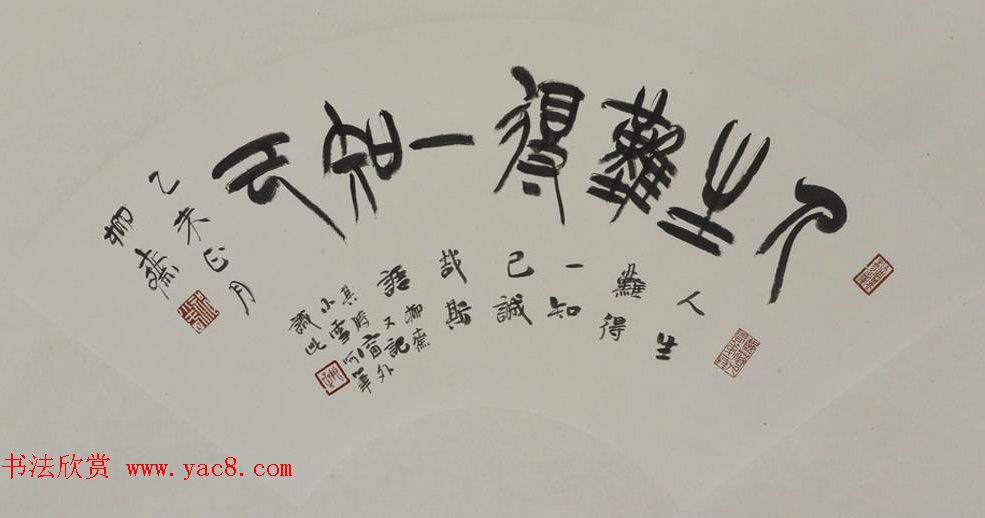 人生難得一知己
乙未正月
柳齋
人生
難得
一知
己誠
哉斯
語柳齋
又記
其時窗外
小雪呵筆
識此
书法欣赏 www.yac8.com